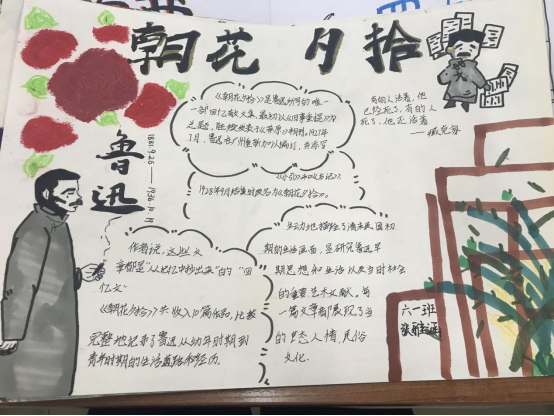 朝花夕拾
鲁迅
1881.9.25——1936.10.19
有的人活着，他
已经死了，有的人
死了，他还活着
——臧克家
《朝花夕拾》是鲁迅所写的唯一
一部回忆散文集，最初以《旧事重提》为
总题目，陆续发表于《莽原》
7月，鲁迅在广州重新加以编订，并添写
《小引》和《后记》，
1928年9月结集时改名为《朝花夕拾》。
作者说，这些文
章都是“从记忆中抄出来”的“回
忆文”
《朝花夕拾》共收入10篇作品，比较
完整地记录了鲁迅从幼年时期到
青年时期的生活道路和经历，
生动地描绘了清末民国初
期的生活画面，是研究鲁迅早
期思想和生活以及当时社会
的重要艺术文献。每
一篇文章都展现了当
的世态人情，民俗
文化.
六一班